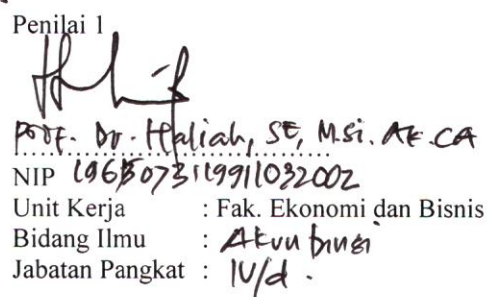 Penilai 1
Prof. Dr. Haliah, SE, M.Si. Ak. CA
NIP 196507311991032002
Unit Kerja : Fak. Ekonomi dan Bisnis
Bidang Ilmu : Akuntansi
Jabatan Pangkat : IV/d.